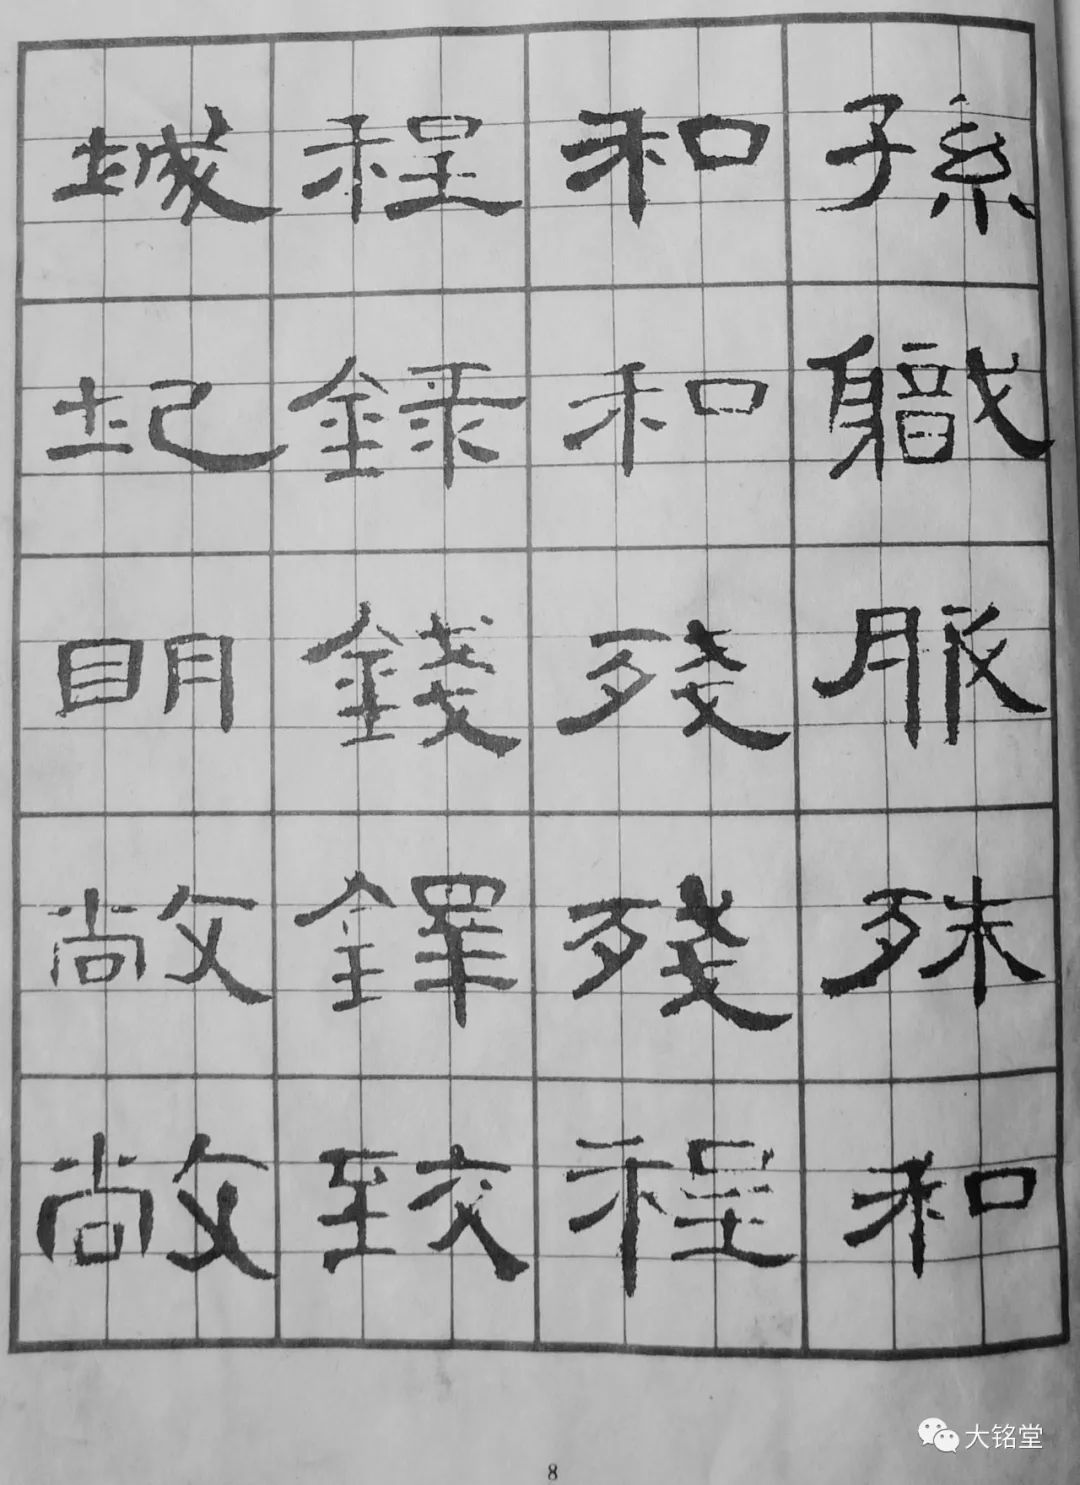 孫軄服殊和
和和殘殘程
程録錢鐸致
城圮明敞敞
8
大铭堂